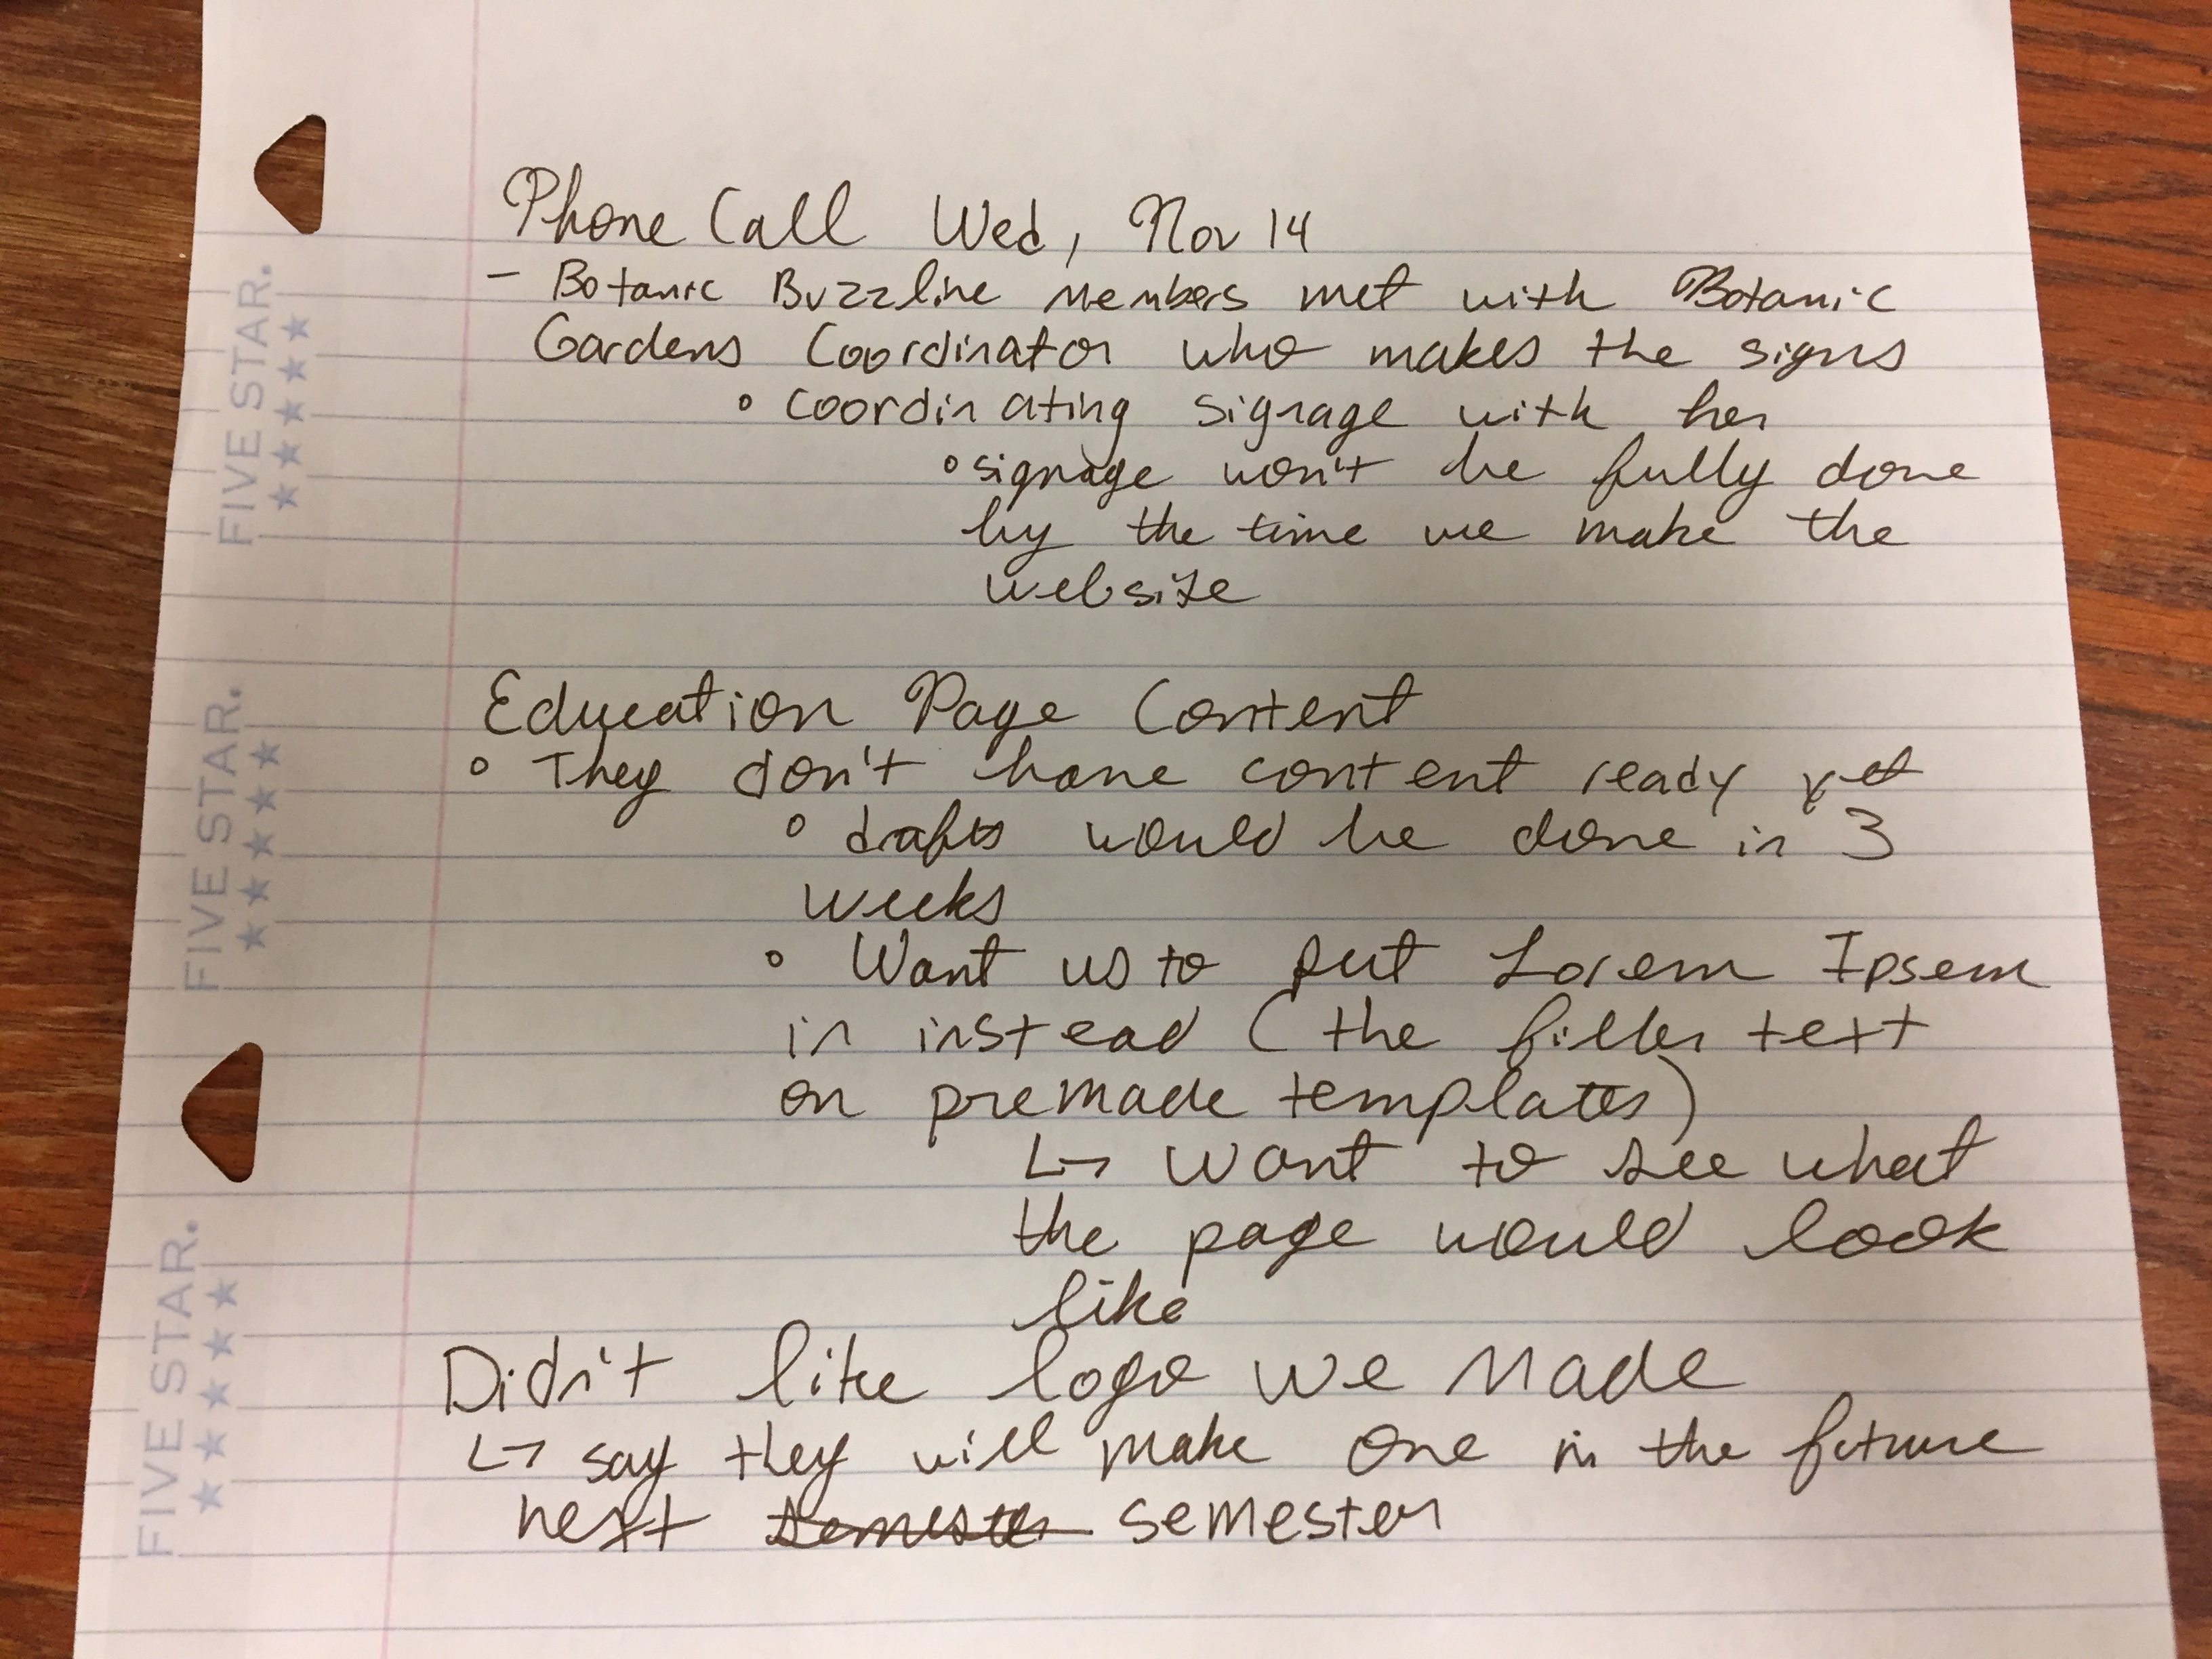 Phone Call Wed, Nov 14
- Botanic Buzzline members met with Botanic
Gardens Coordinator who makes the signs
◦ coordinating signage with her
◦ signage won't be fully done
by the time we make the
website
Education Page Content
◦ They don't have content ready yet
◦ drafts would be done in 3
weeks
◦ Want us to put Lorem Ipsem
in instead (the filler text
on premade templates)
↳ want to see what
the page would look
like
Didn't like logo we made
↳ say they will make one in the future
next semester semester
FIVE STAR.
FIVE STAR.
FIVE STAR.